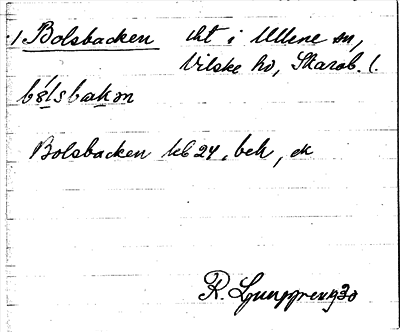 ./ Bolsbacken cht i Ullene sn,
Vilske hd, Skarab. l.
bo̤lsbakən
Bolsbacken kb 24, beh, ek
R. Ljunggren 930